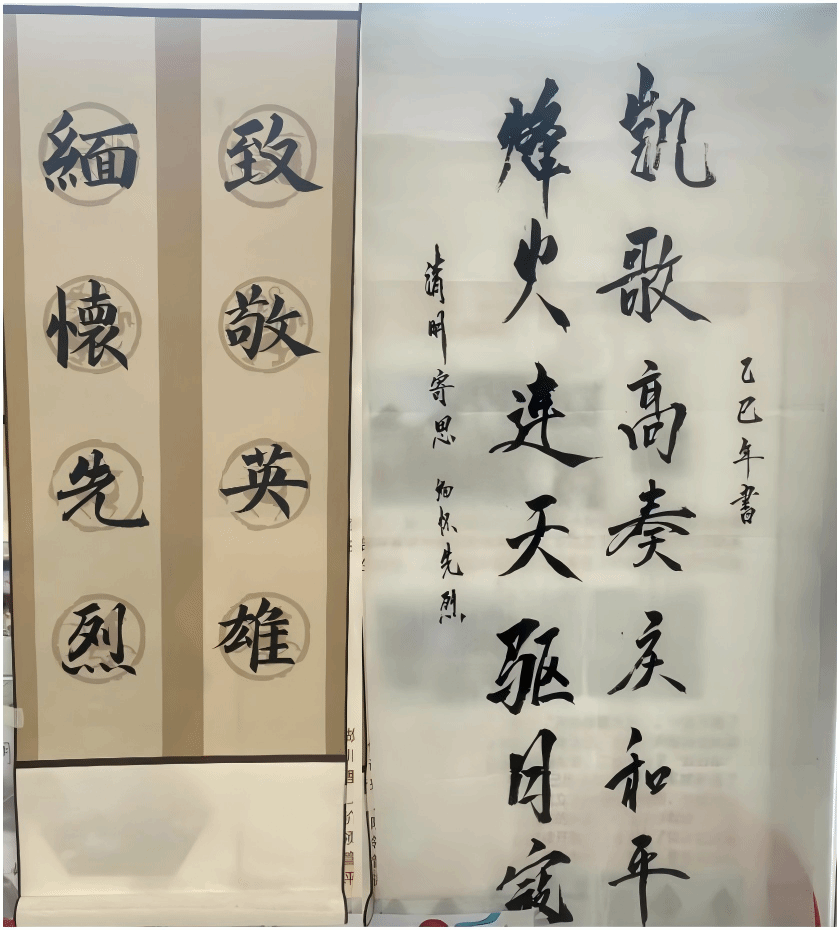 致敬英雄
緬懷先烈
乙巳年書
凯歌高奏庆和平
烽火连天驱日寇
清明寄思 缅怀先烈